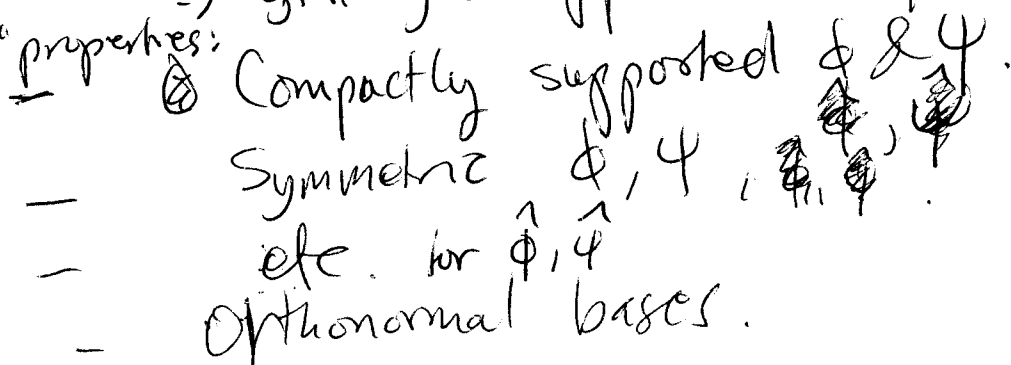 "properties:
- Compactly supported ϕ & ψ.
- Symmetric ϕ, ψ, .
- etc. for ϕ̂, ψ̂
- Orthonormal bases.